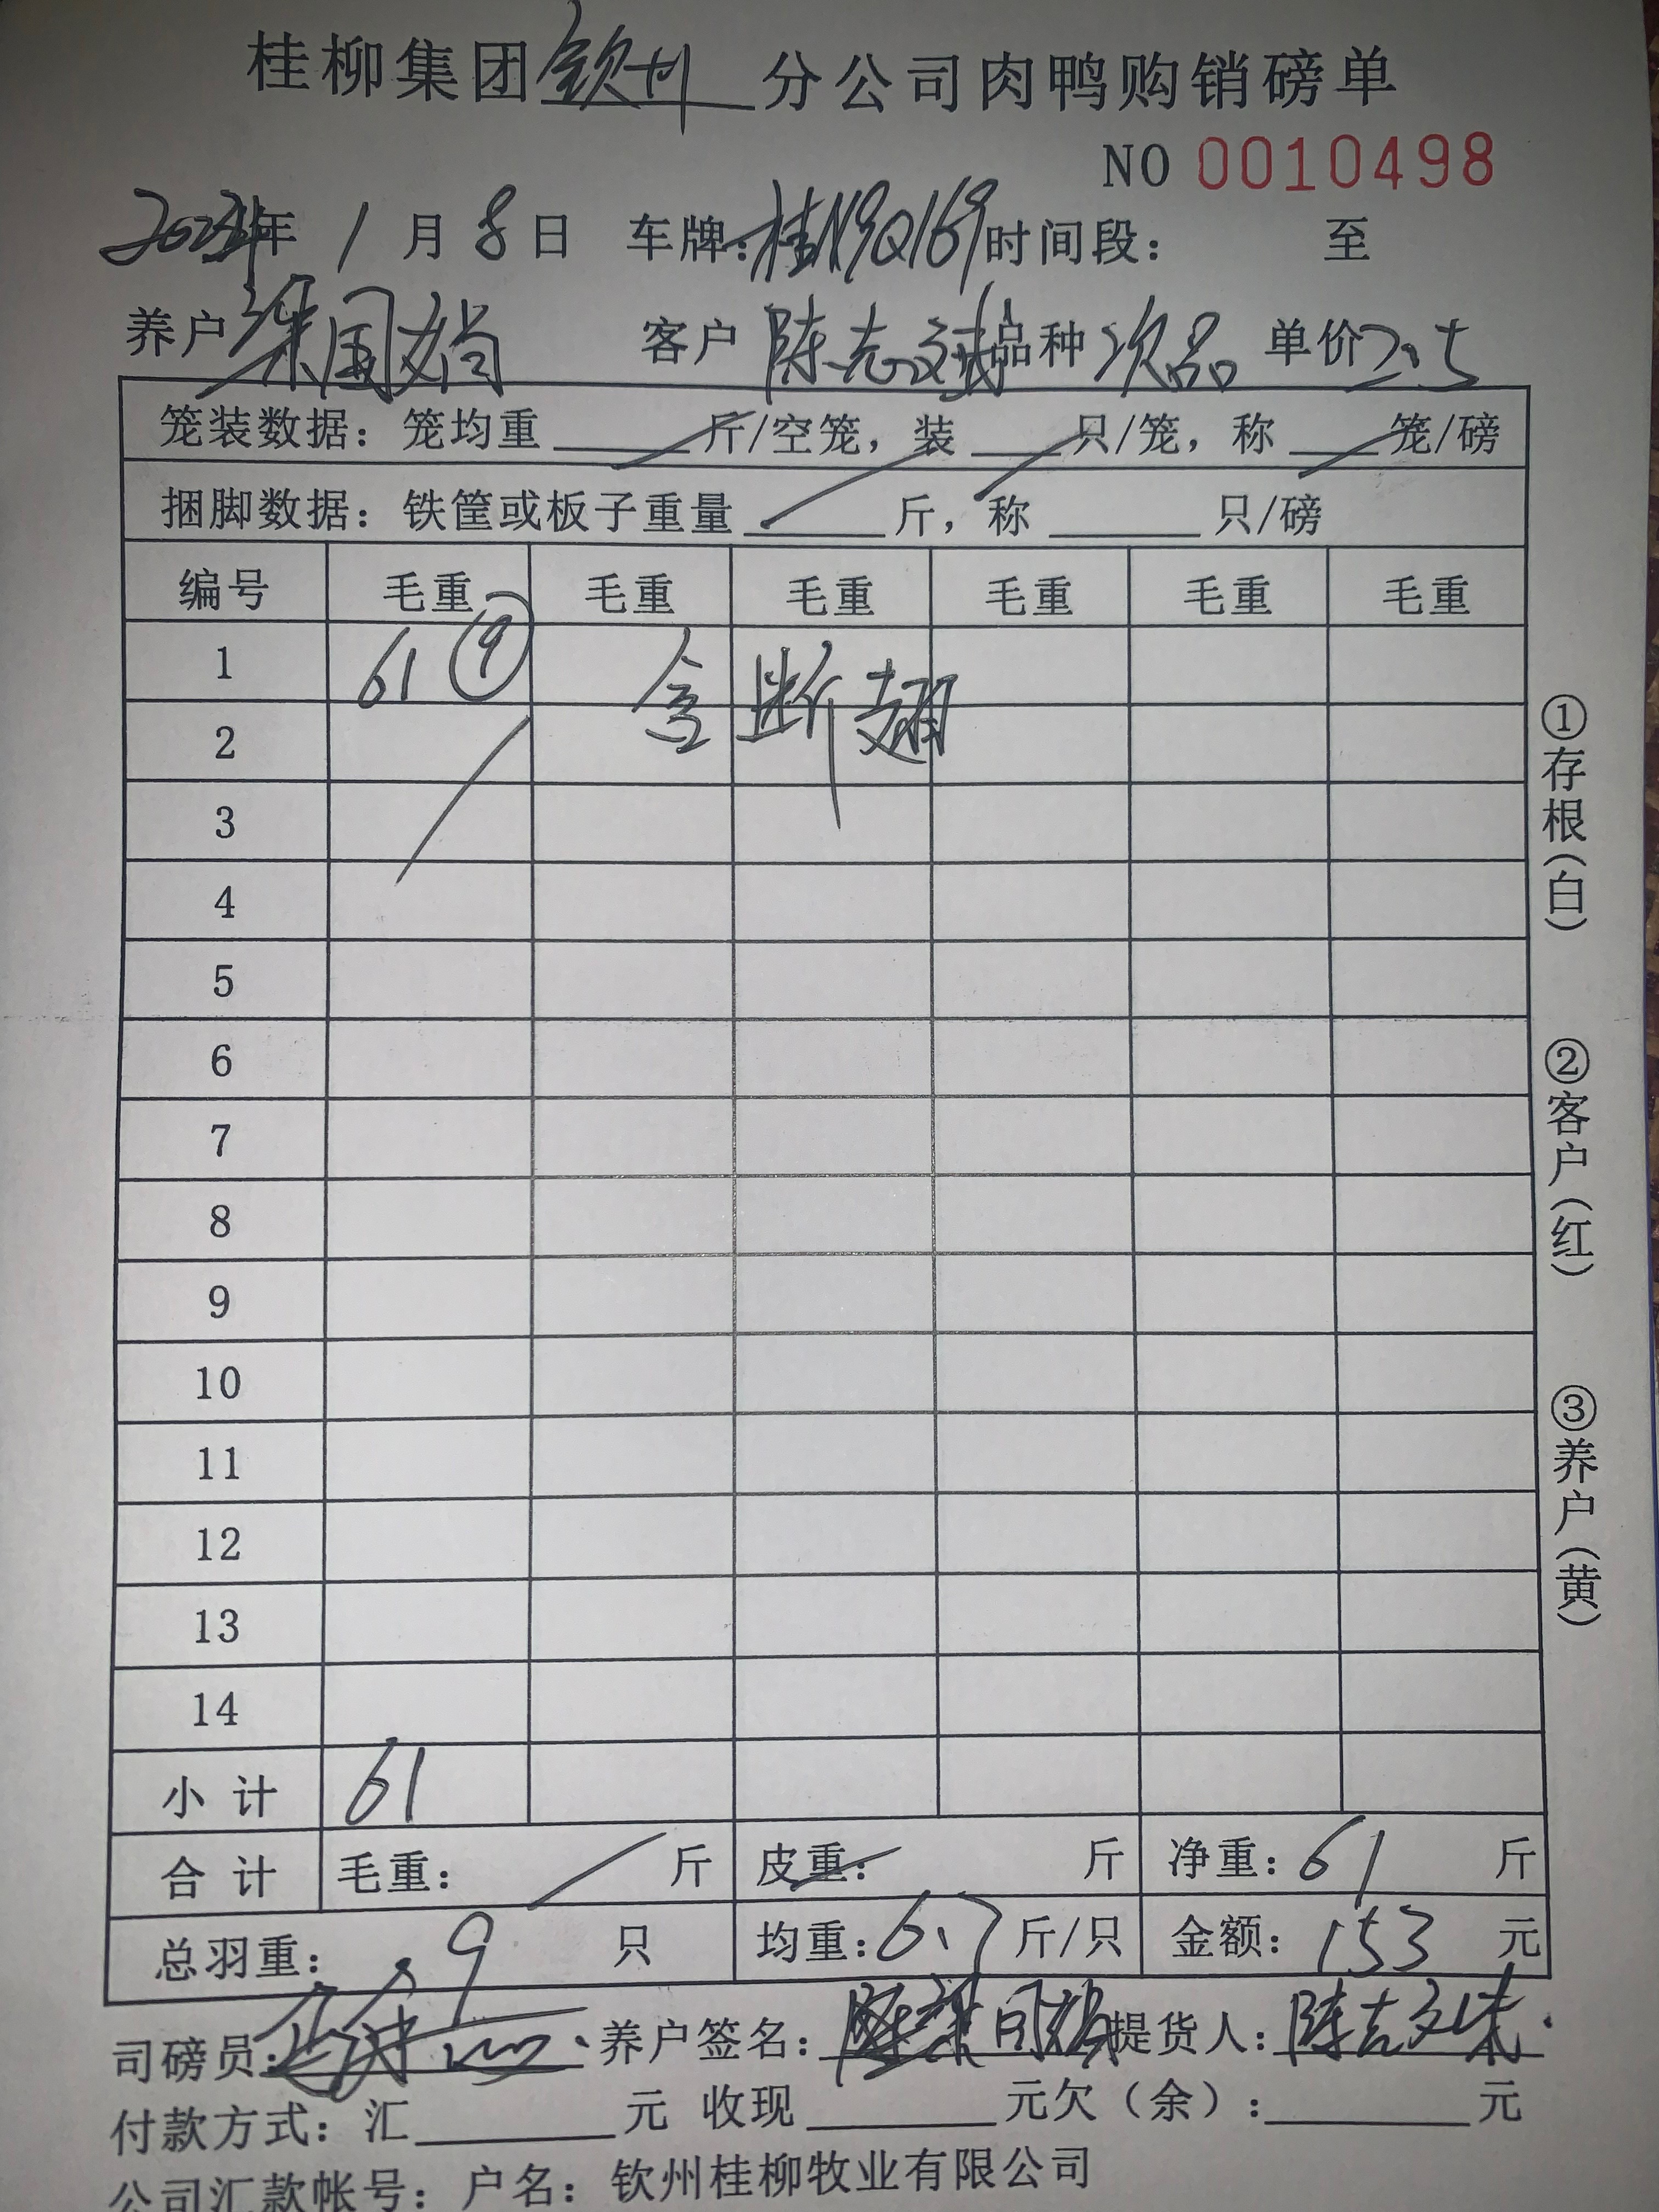 桂柳集团钦州分公司肉鸭购销磅单
NO 0010498
年 1月8日 车牌:桂N9Q169 时间段: 至
养户 国 客户 陈志 品种 次品 单价 2.5
笼装数据:笼均重 斤/空笼,装 只/笼,称 笼/磅
捆脚数据:铁筐或板子重量 斤,称 只/磅
编号 毛重 毛重 毛重 毛重 毛重 毛重
1 61 ⑨ 含断翅
2
3
4
5
6
7
8
9
10
11
12
13
14
小计 61
合计 毛重: 斤 皮重: 斤 净重:61 斤
总羽重: 9 只 均重:6.7 斤/只 金额:153 元
司磅员: 养户签名: 提货人:陈志
付款方式:汇 元 收现 元欠(余): 元
公司汇款帐号:户名:钦州桂柳牧业有限公司
①存根(白)
②客户(红)
③养户(黄)